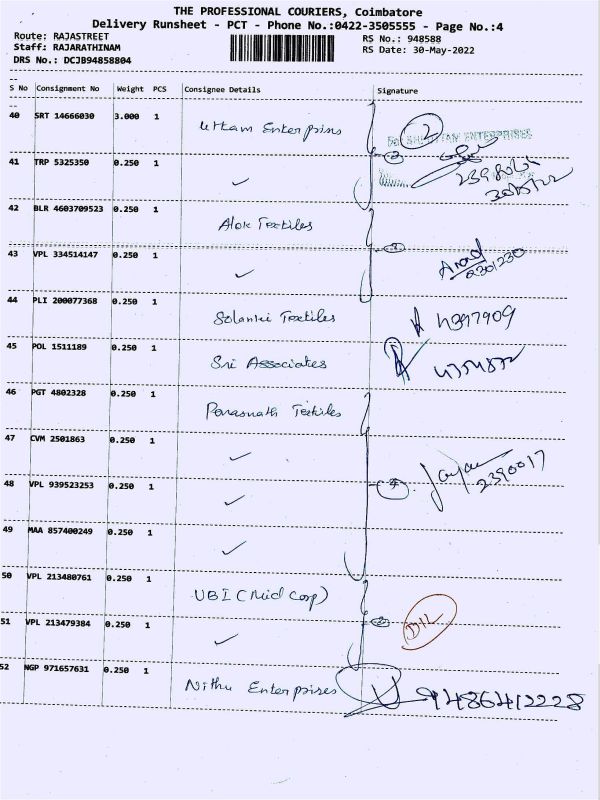 THE PROFESSIONAL COURIERS, Coimbatore
Delivery Runsheet - PCT - Phone No.:0422-3505555 - Page No.:4
Route: RAJASTREET
RS No.: 948588
Staff: RAJARATHINAM
RS Date: 30-May-2022
DRS No.: DCJB94858804
S No Consignment No Weight PCS Consignee Details Signature
40 SRT 14666030 3.000 1 Uttam Enterprises 2
ENTERPRISES
41 TRP 5325350 0.250 1 ✓ 2
42 BLR 4603709523 0.250 1 Alok Textiles
43 VPL 334514147 0.250 1 ✓ 2
2301230
44 PLI 200077368 0.250 1 Solanki Textiles
45 POL 1511189 0.250 1 Sri Associates
46 PGT 4802328 0.250 1 Parasnath Textiles
47 CVM 2501863 0.250 1 ✓
2390017
48 VPL 939523253 0.250 1 ✓ 4
49 MAA 857400249 0.250 1 ✓
50 VPL 213480761 0.250 1 UBI (Mid Corp)
51 VPL 213479384 0.250 1 ✓ 2
52 NGP 971657631 0.250 1 Nithu Enterprises 9486412228